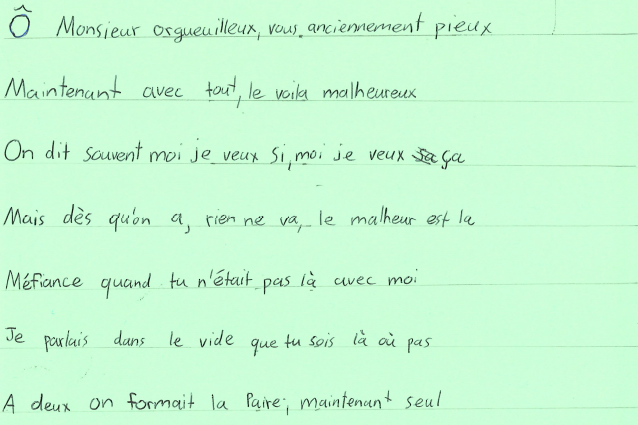 Ô Monsieur orgueuilleux, vous anciennement pieux
Maintenant avec tout, le voila malheureux
On dit souvent moi je veux si, moi je veux ça
Mais dès qu'on a, rien ne va, le malheur est la
Méfiance quand tu n'était pas là avec moi
Je parlais dans le vide que tu sois là où pas
A deux on formait la Paire, maintenant seul